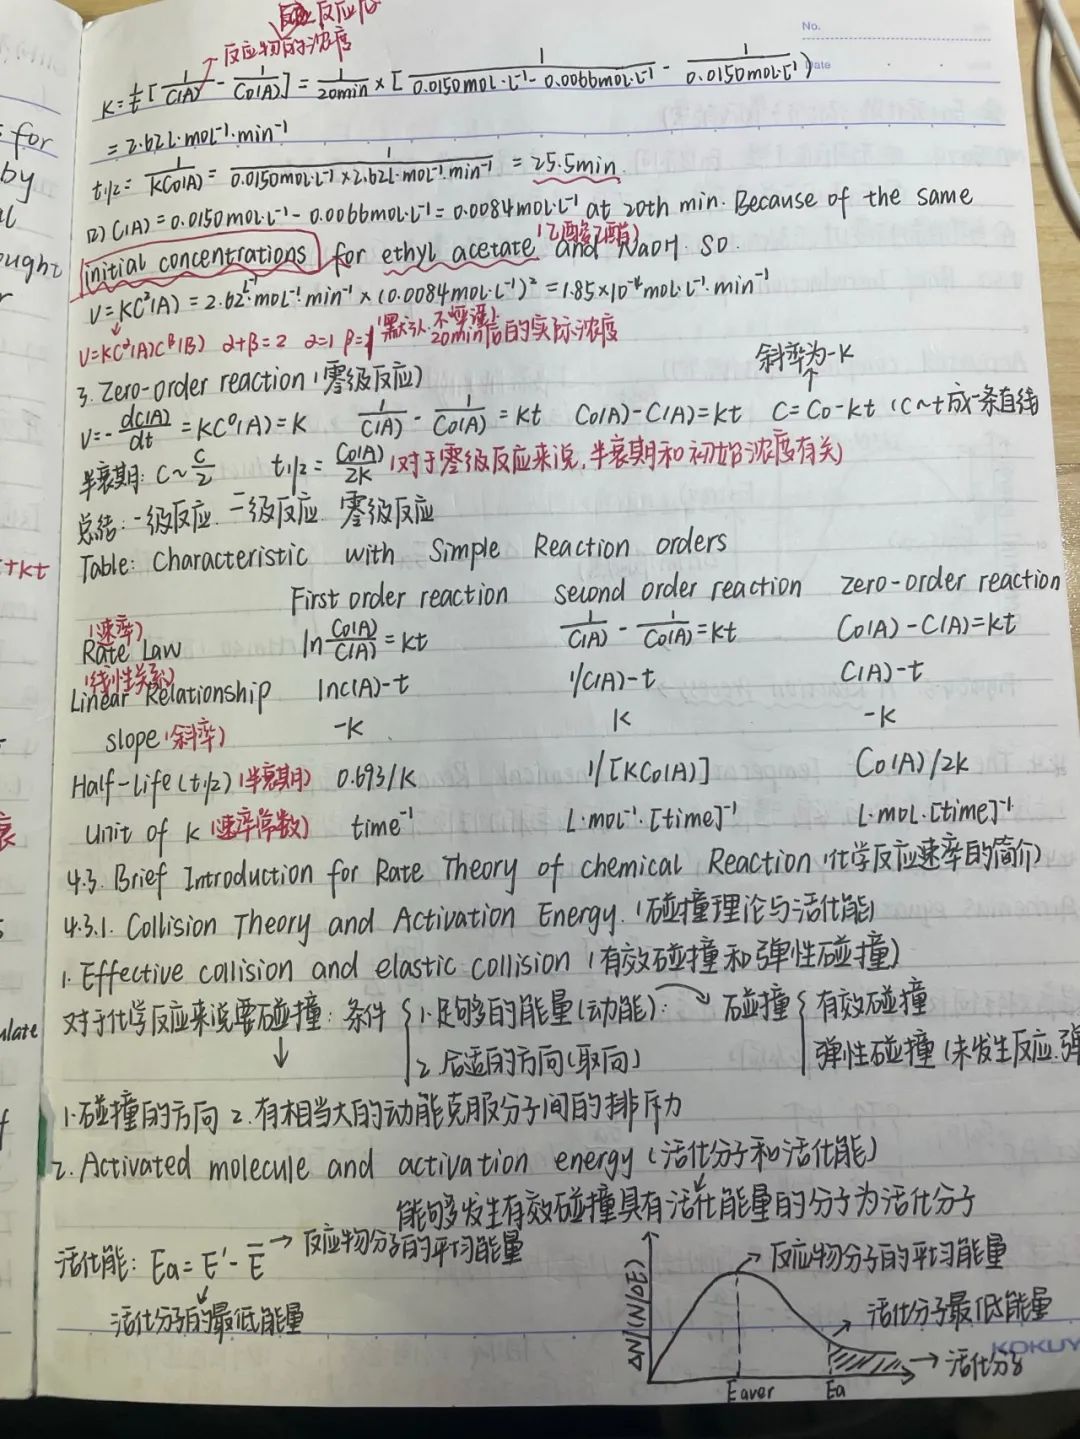 反应后
反应物的浓度
No.
Date
K=1/t[1/C(A) - 1/C₀(A)] = 1/20min × [1/(0.0150mol·L⁻¹ - 0.0066mol·L⁻¹) - 1/0.0150mol·L⁻¹)
= 2.62L·mol⁻¹·min⁻¹
t1/2 = 1/KC₀(A) = 1/(0.0150mol·L⁻¹×2.62L·mol⁻¹·min⁻¹) = 25.5min.
(2) C(A) = 0.0150mol·L⁻¹ - 0.0066mol·L⁻¹ = 0.0084mol·L⁻¹ at 20th min. Because of the same
initial concentrations for ethyl acetate (乙酸乙酯) and NaOH. SO.
V = KC²(A) = 2.62L·mol⁻¹·min⁻¹ × (0.0084mol·L⁻¹)² = 1.85×10⁻⁴mol·L⁻¹·min⁻¹
V=KCᵅ(A)Cᵝ(B) α+β=2 α=1 β=1 20min后的实际浓度
斜率为-K
3. Zero-order reaction (零级反应)
V = -dC(A)/dt = KC⁰(A) = K 1/C(A) - 1/C₀(A) = Kt C₀(A)-C(A)=Kt C=C₀-Kt (C~t成一条直线
半衰期: C~C/2 t1/2 = C₀(A)/2K (对于零级反应来说,半衰期和初始浓度有关)
总结:一级反应.二级反应.零级反应
Table: Characteristic with Simple Reaction orders
First order reaction second order reaction zero-order reaction
(速率)
Rate Law ln C₀(A)/C(A) = Kt 1/C(A) - 1/C₀(A) = Kt C₀(A)-C(A)=Kt
(线性关系)
Linear Relationship lnC(A)-t 1/C(A)-t C(A)-t
slope (斜率) -K K -K
Half-Life (t1/2) (半衰期) 0.693/K 1/[KC₀(A)] C₀(A)/2K
unit of K (速率常数) time⁻¹ L·mol⁻¹·[time]⁻¹ L·mol·[time]⁻¹
4.3. Brief Introduction for Rate Theory of chemical Reaction (化学反应速率的简介)
4.3.1. Collision Theory and Activation Energy. (碰撞理论与活化能)
1. Effective collision and elastic collision (有效碰撞和弹性碰撞)
对于化学反应来说要碰撞: 条件 { 1.足够的能量(动能): 碰撞 { 有效碰撞
2.合适的方向(取向) 弹性碰撞 (未发生反应.弹
1.碰撞的方向 2.有相当大的动能克服分子间的排斥力
2. Activated molecule and activation energy (活化分子和活化能)
能够发生有效碰撞具有活化能量的分子为活化分子
活化能: Ea = E' - E̅ → 反应物分子的平均能量
活化分子的最低能量
ΔN/(N/ΔE)
反应物分子的平均能量
活化分子最低能量
活化分子
KOKUY
Eaver Ea